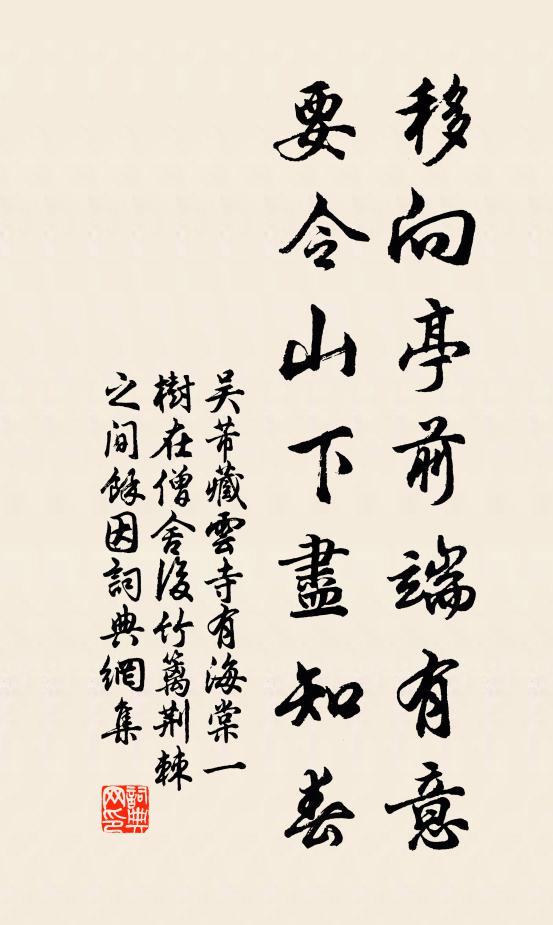 移向亭前端有意
要令山下盡知春
吴芾藏雲寺有海棠一
樹在僧舍後竹篱荆棘
之间餘因詞典網集
詞典
网印